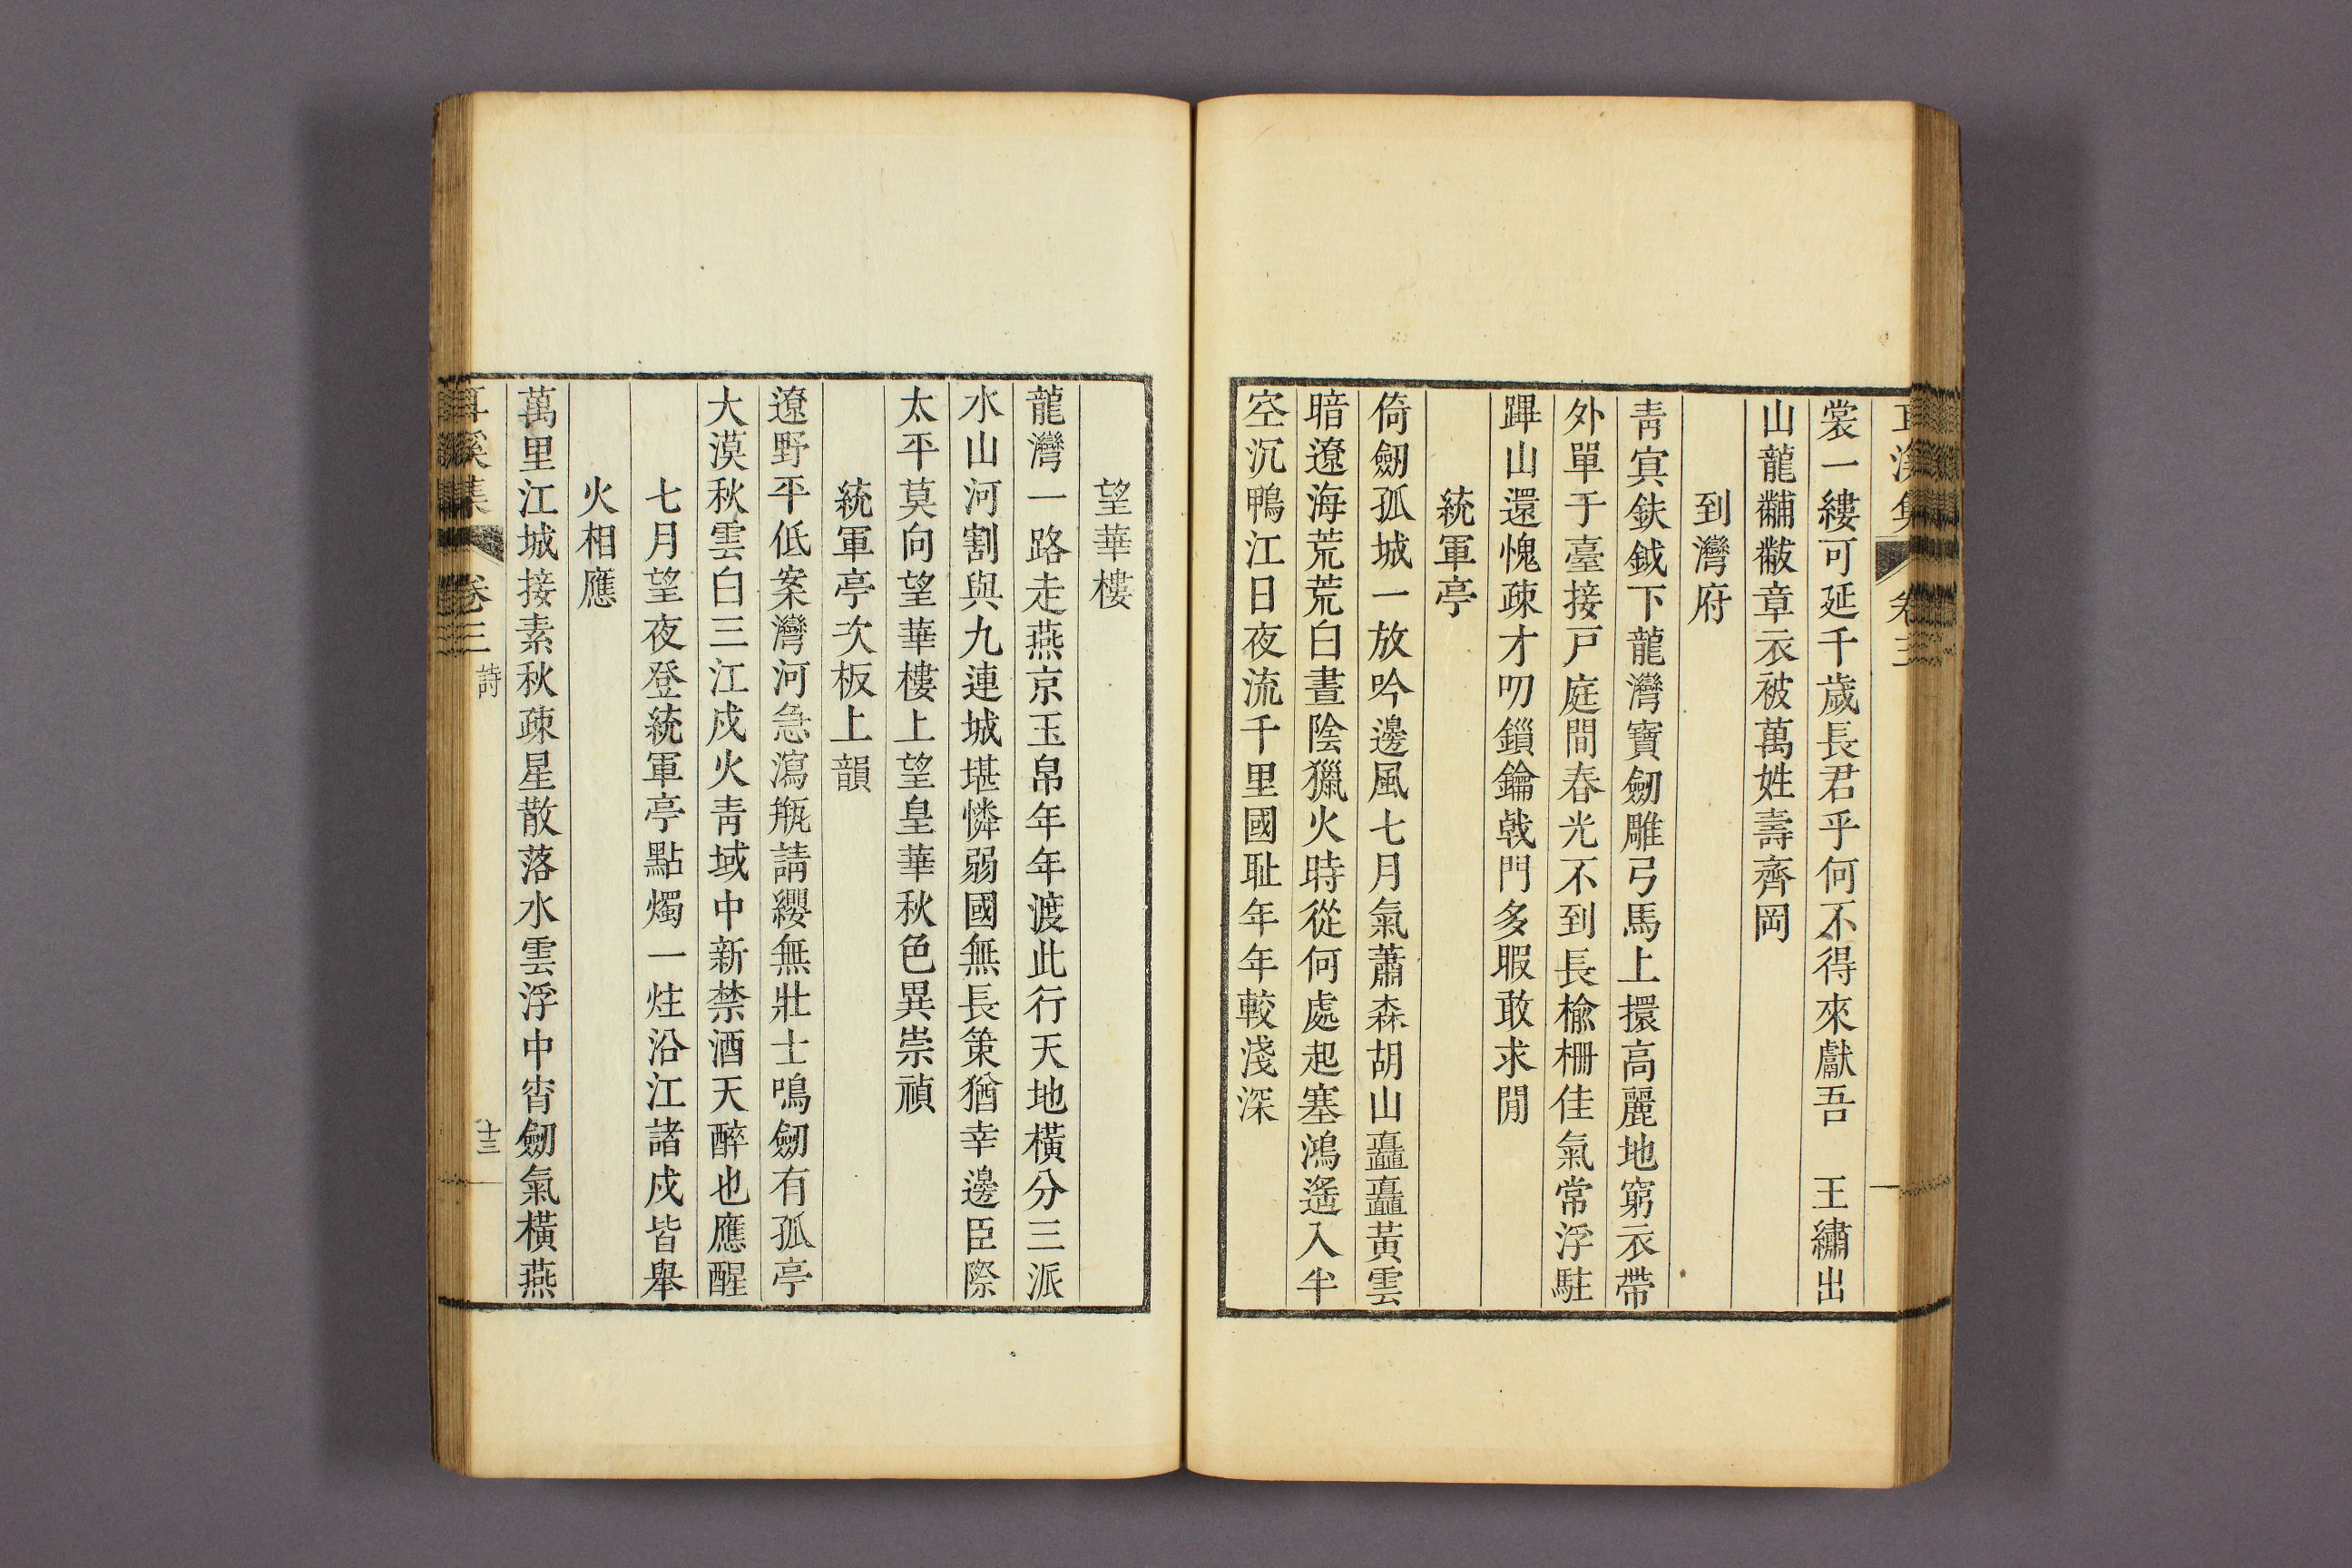 耳溪集 卷三
裳一縷可延千歲長君乎何不得來獻吾　王繡出
山龍黼黻章衣被萬姓壽齊岡
到灣府
靑寘鈇鉞下龍灣寶劒雕弓馬上擐高麗地窮衣帶
外單于臺接戸庭間春光不到長楡柵佳氣常浮駐
蹕山還愧疎才叨鎻鑰戟門多暇敢求閒
統軍亭
倚劒孤城一放吟邊風七月氣蕭森胡山矗矗黃雲
暗遼海荒荒白晝陰獵火時從何處起塞鴻遙入半
空沉鴨江日夜流千里國耻年年較淺深
望華樓
龍灣一路走燕京玉帛年年渡此行天地橫分三派
水山河割與九連城堪憐弱國無長策猶幸邊臣際
太平莫向望華樓上望皇華秋色異崇禎
統軍亭次板上韻
遼野平低案灣河急瀉瓶請纓無壯士鳴劒有孤亭
大漠秋雲白三江戍火靑域中新禁酒天醉也應醒
七月望夜登統軍亭點燭一炷沿江諸戍皆舉
火相應
萬里江城接素秋疎星散落水雲浮中宵劒氣橫燕
耳溪集 卷三 詩 十三